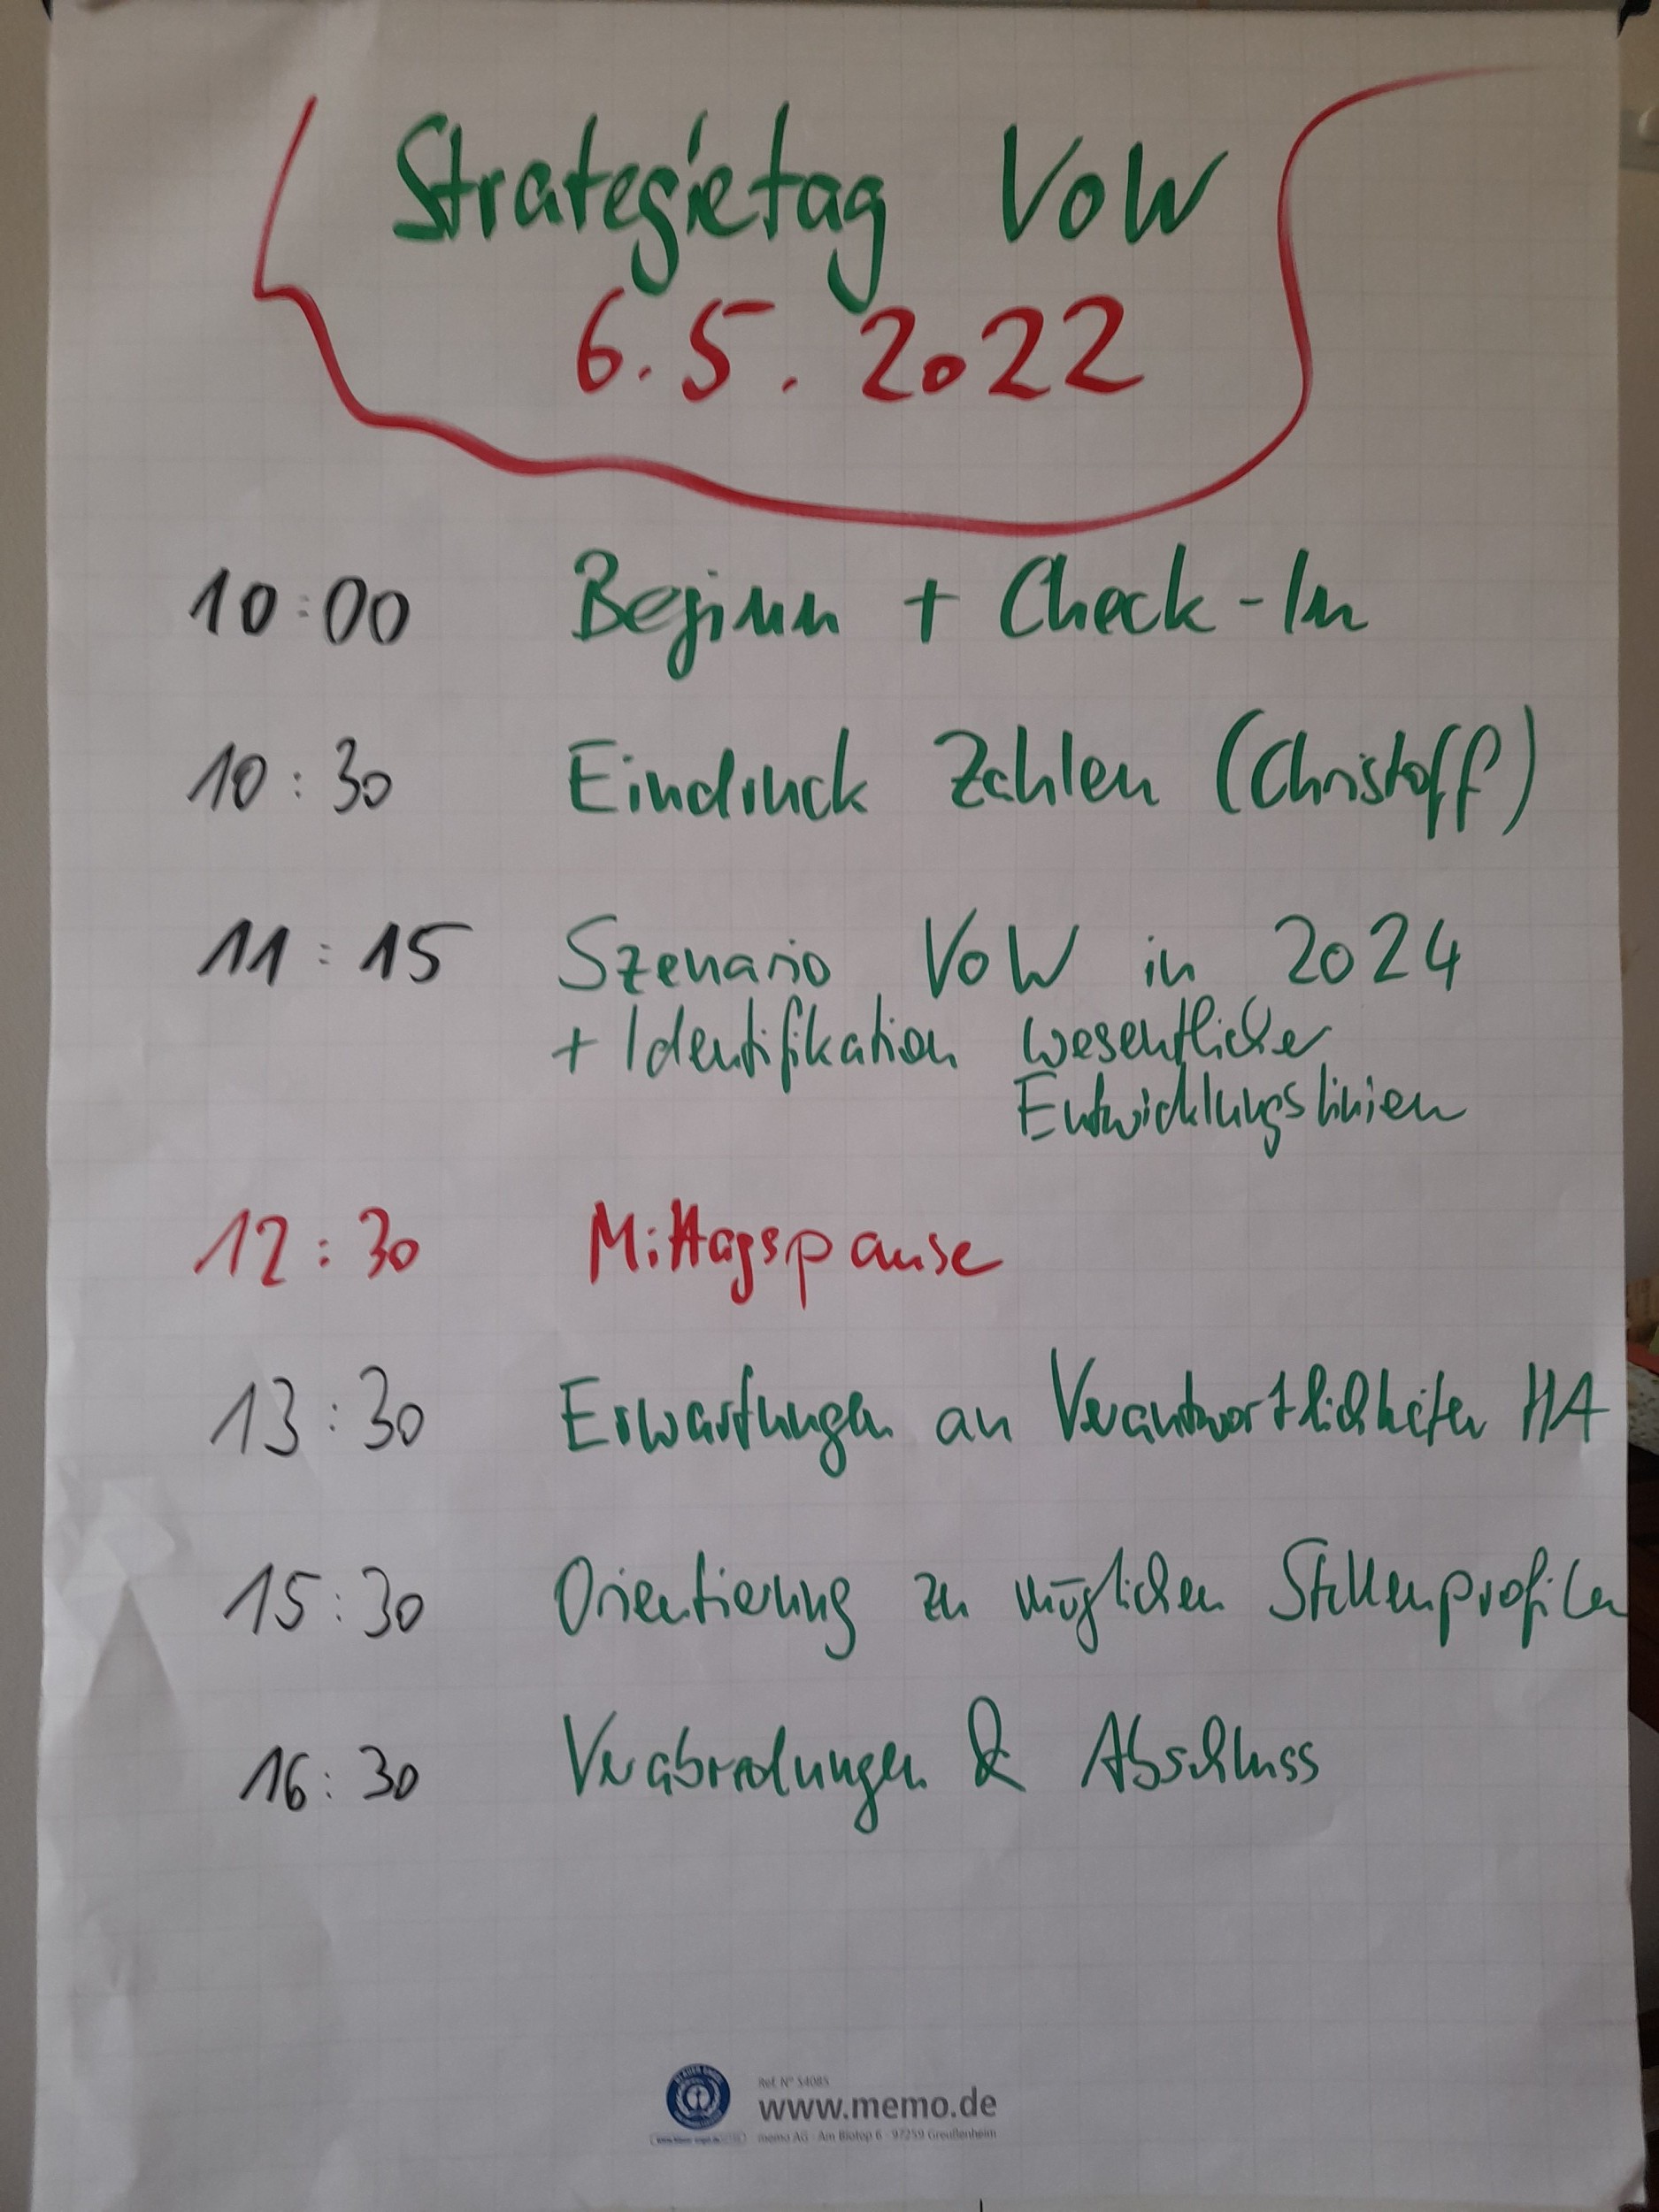 Strategietag VoW
6.5.2022
10:00 Beginn + Check-In
10:30 Eindruck Zahlen (Christoff)
11:15 Szenario VoW in 2024
+ Identifikation wesentlicher
Entwicklungslinien
12:30 Mittagspause
13:30 Erwartungen an Verantwortlichkeiten HA
15:30 Orientierung zu möglichen Stellenprofilen
16:30 Verabredungen & Abschluss
Ref. N° 54085
www.memo.de
memo AG · Am Biotop 6 · 97259 Greußenheim